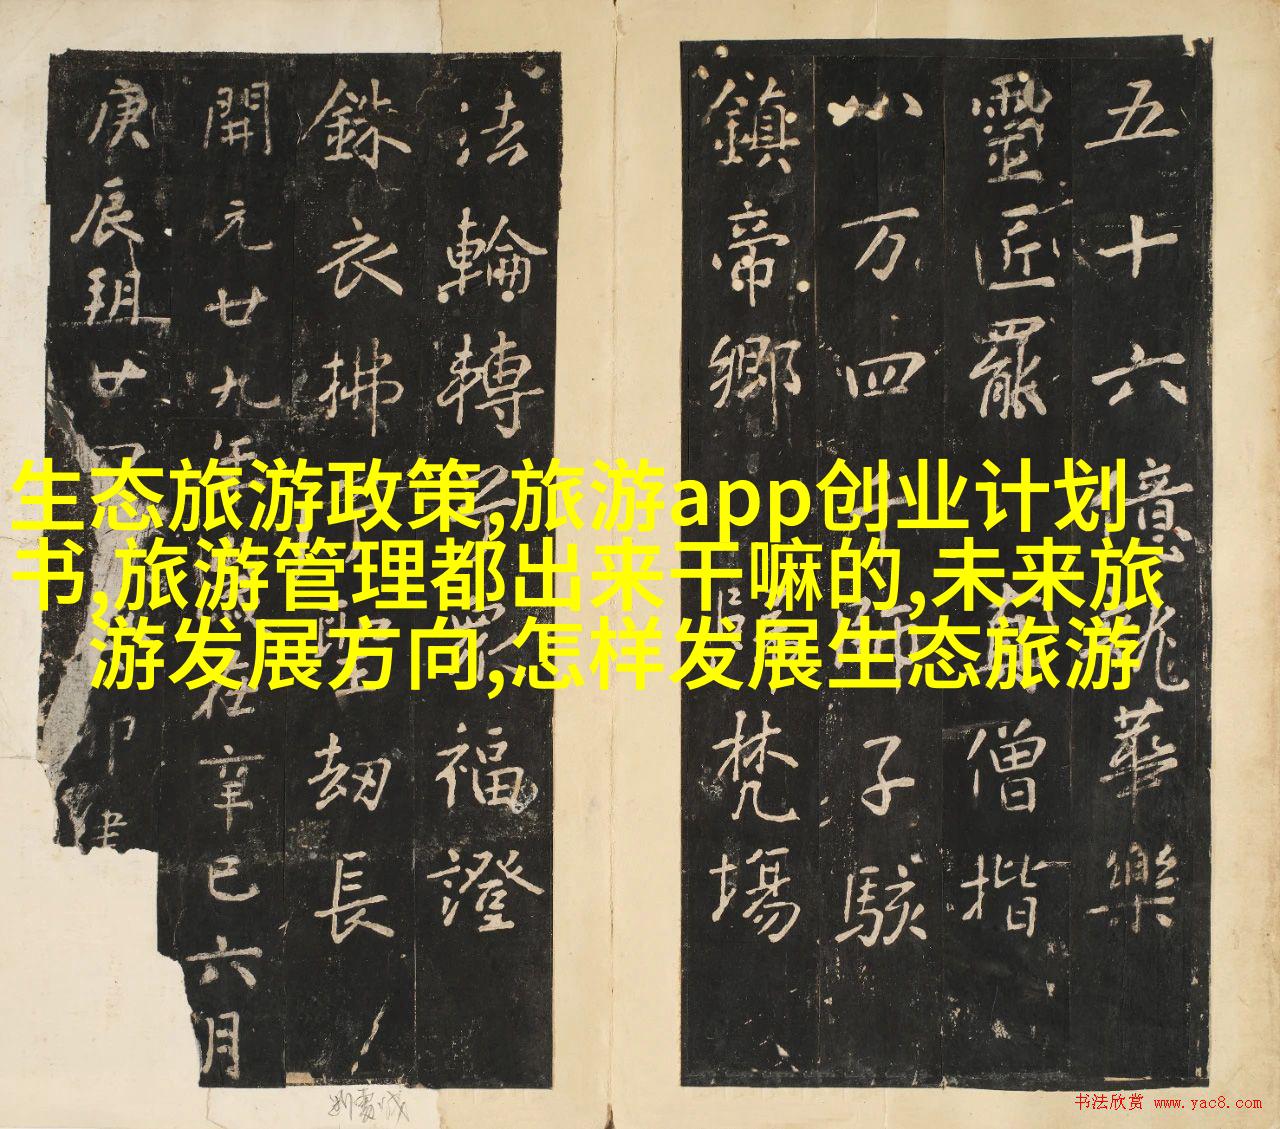 生态旅游政策,旅游app创业计划
书,旅游管理都出来干嘛的,未来旅
游发展方向,怎样发展生态旅游
五十六億華樂
靈匠罷僧揩
八万四子駭
鎮帝鄉梵場
法輪轉福證
銖衣拂劫長
開元廿九年歲在辛巳六月
庚辰朔廿
书法欣赏 www.yac8.com